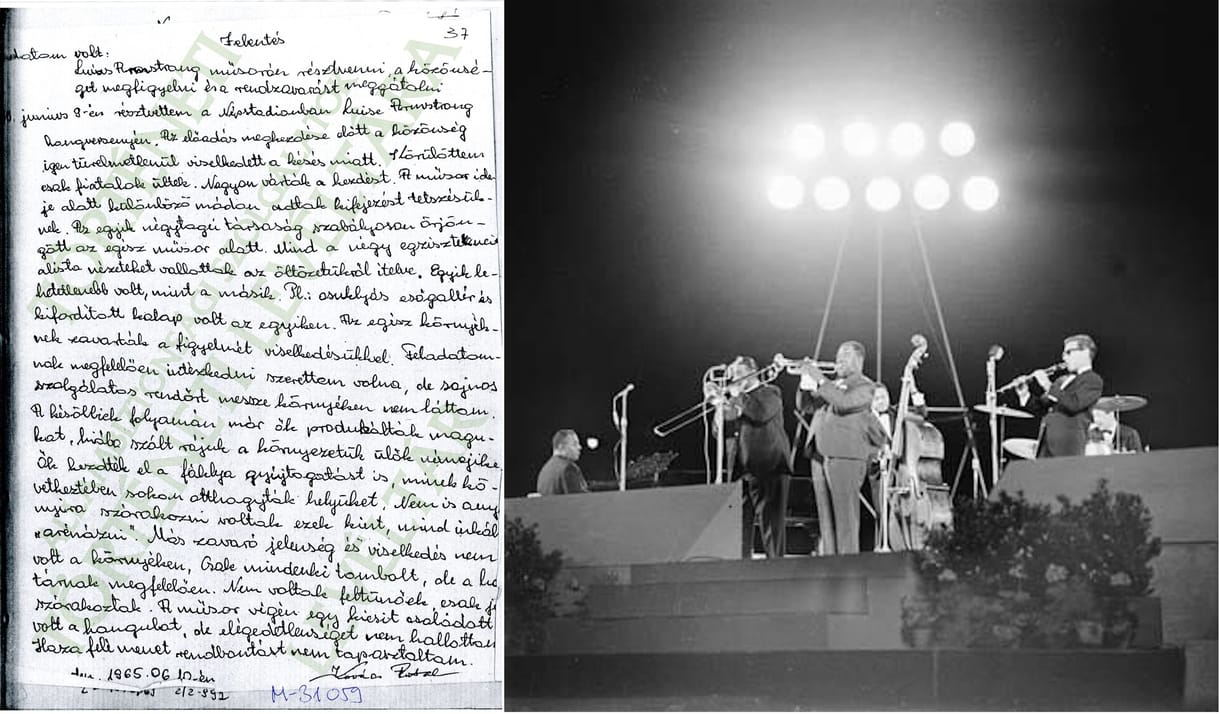 37
Jelentés
volt:
Luise Armstrong műsorán résztvenni, a közönsé-
get megfigyelni és a rendzavarást meggátolni
junius 9-én résztvettem a Népstadionban Luise Armstrong
hangversenyén. Az előadás megkezdése előtt a közönség
igen türelmetlenül viselkedett a késés miatt. Körülöttem
csak fiatalok ültek. Nagyon várták a kezdést. A műsor ide-
je alatt különböző módon adtak kifejezést tetszésük-
nek. Az egyik négytagú társaság szabályosan őrjön-
gött az egész műsor alatt. Mind a négy egzisztencia
alista nézeteket vallottak az öltözetükről itélve. Egyik le-
hetetlenebb volt, mint a másik. Pl.: csuklyás esőgallér és
kifordított kalap volt az egyiken. Az egész környék-
nek zavarták a figyelmét viselkedésükkel. Feladatom-
nak megfelelően intézkedni szerettem volna, de sajnos
szolgálatos rendőrt messze környéken nem láttam.
A későbbiek folyamán már ők produkálták magu-
kat, hiába szólt rájuk a környezetük ülők némelyike.
Ők kezdték el a fáklya gyújtogatást is, minek kö-
vetkeztében sokan otthagyták helyüket. Nem is any
nyira szórakozni voltak ezek kint, mind inkáb
"arénázni". Más zavaró jelenség és viselkedés nem
volt a környéken, Csak mindenki tombolt, de a ha
tárnak megfelelően. Nem voltak feltünőek, csak jó
szórakoztak. A műsor végén egy kicsit csalódott
volt a hangulat, de elégedetlenséget nem hallottam
Haza felé menet rendbontást nem tapasztaltam.
1965.06 10-én
M-31059
TÖRTÉNETI LEVÉLTÁRA